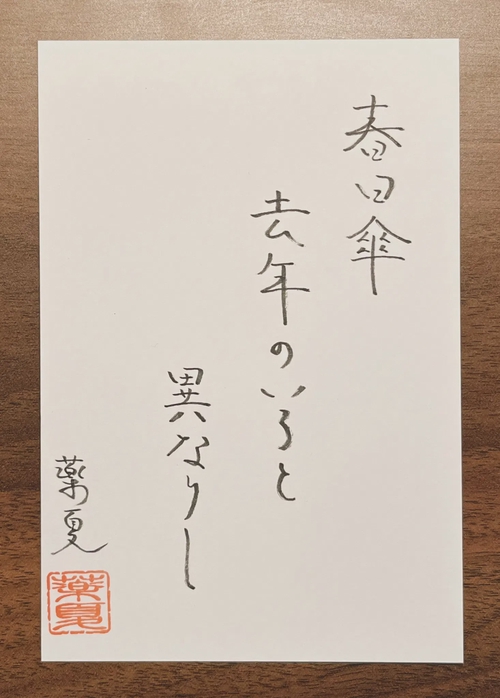 春日傘
去年のいろと
異なりし
薬夏
薬夏